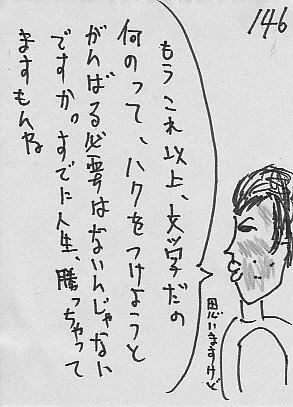 146
もうこれ以上、文学だの
何のって、ハクをつけようと
がんばる必要はないんじゃない
ですか。すでに人生、腐っちゃって
ますもんね
思いますけど